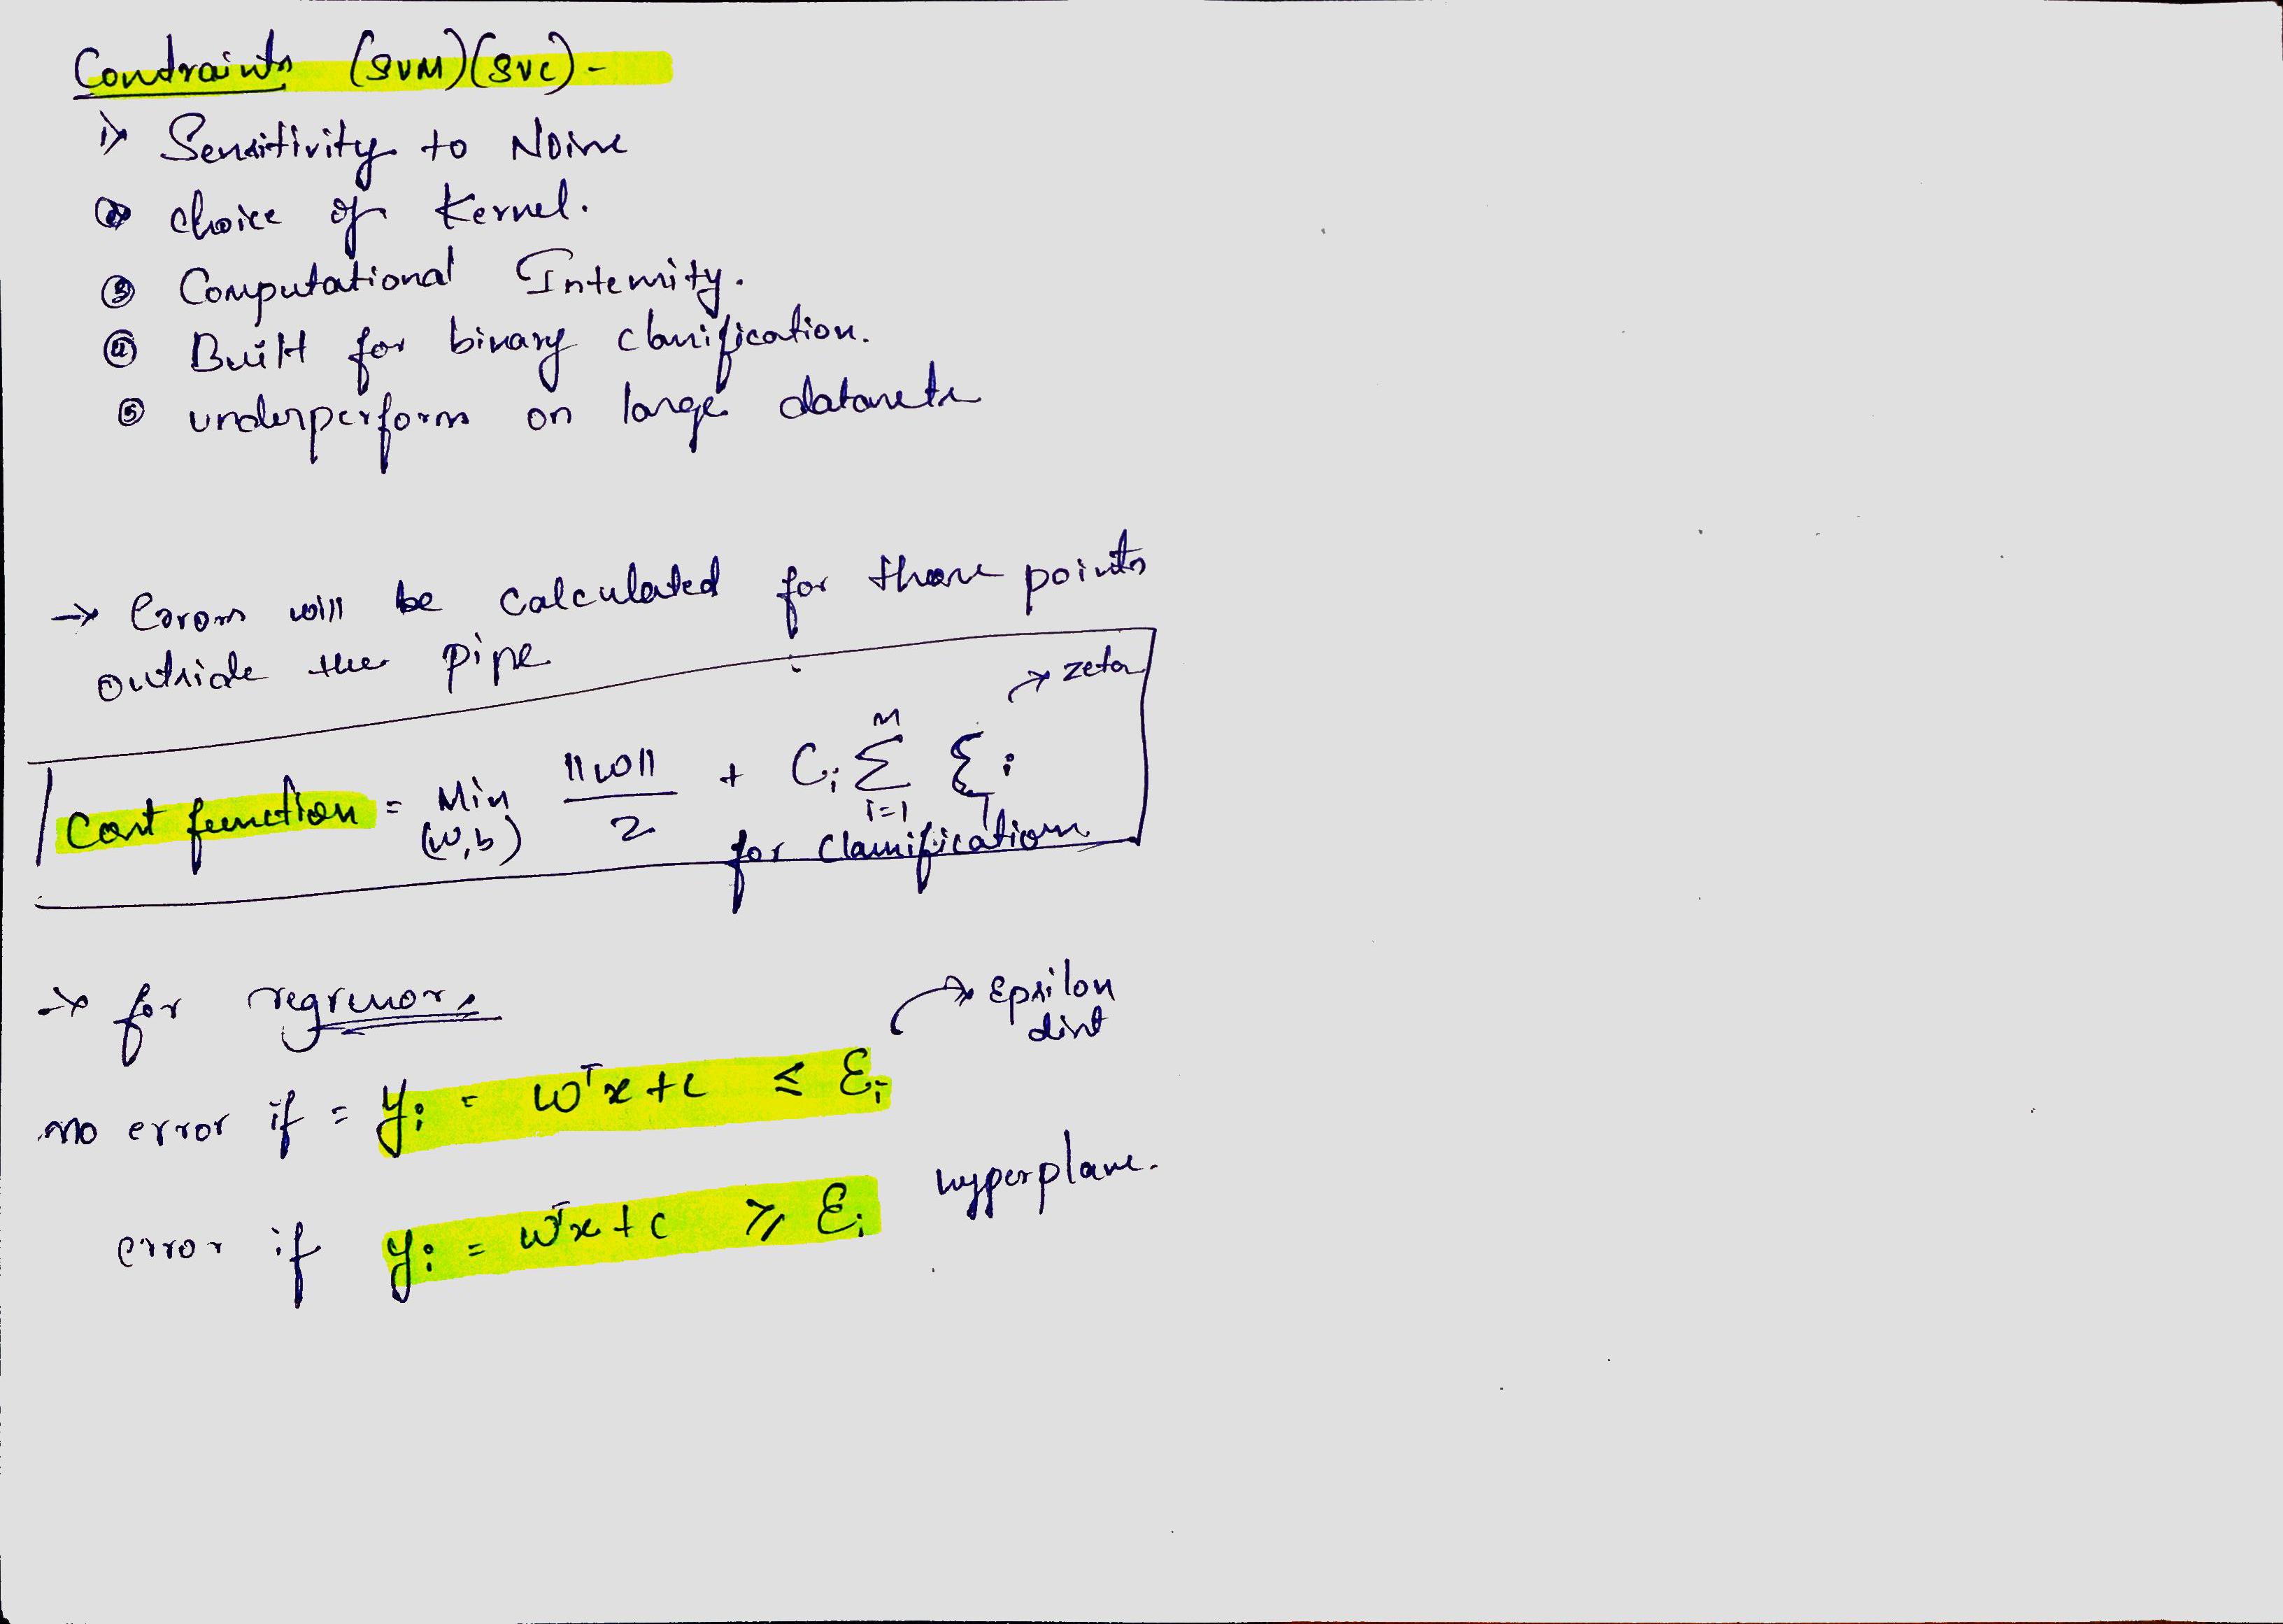 Constraints (SVM)(SVC) -
1) Sensitivity to Noise
② choice of Kernel.
③ Computational Intensity.
④ Built for binary classification.
⑤ underperforms on large datasets
→ Errors will be calculated for those points
outside the pipe
→ zeta
Cost function = Min (w,b) ||w||/2 + Cᵢ M Σ i=1 ξᵢ
for classification
→ for regressor,
→ Epsilon
dist
no error if = yᵢ = wᵀx + c ≤ Ɛᵢ
hyperplane.
error if yᵢ = wᵀx + c ≥ Ɛᵢ